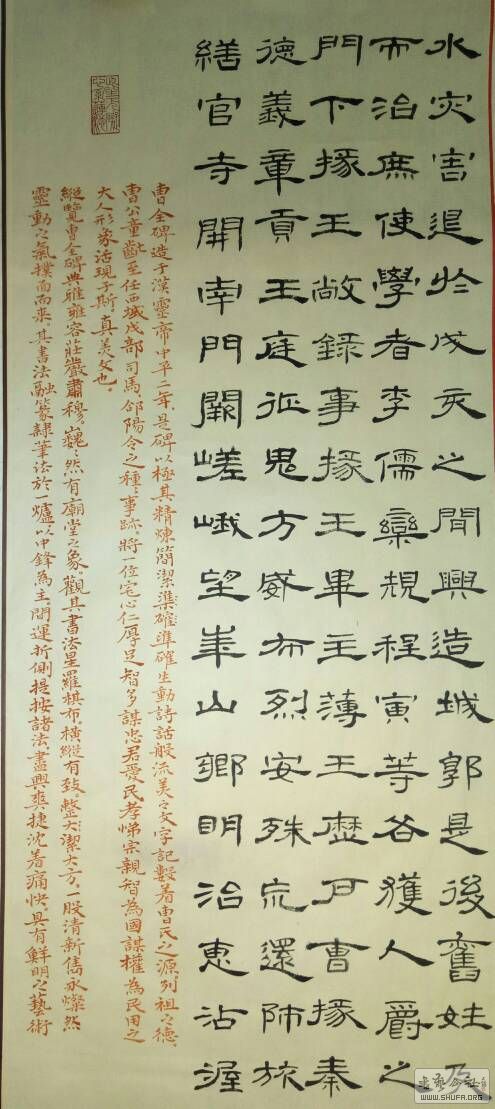 水灾害退於戌亥之間興造城郭是後舊姓及
而治庶使學者李儒欒規程寅等各獲人爵之
門下掾王敞錄事掾王畢主薄王歷戶曹掾秦
德義章貢王庭征鬼方威布烈安殊荒還師旅
繕官寺開南門闕嵯峨望華山鄉明治惠沾渥
曹全碑造于漢靈帝中平二年,是碑以極其精煉簡潔準確生動詩話般流美之文字記數着曹氏之源,列祖之德,
曹公童齔至任西域戊部司馬郃陽令之種種事跡。將一位宅心仁厚足智多謀忠君愛民孝悌宗親智為國謀權為民用之
大人形象活現于斯,真美文也。
縱覽曹全碑典雅雍容莊嚴肅穆,巍巍然有廟堂之象。觀其書法星羅棋布,橫縱有致。整潔大方,一股清新雋永燦然
靈動之氣撲面而來。其書法融篆隸筆法於一爐以中鋒為主,間運折側提按諸法盡興爽捷沈着痛快,具有鮮明之藝術
WWW.SHUFR.ORG